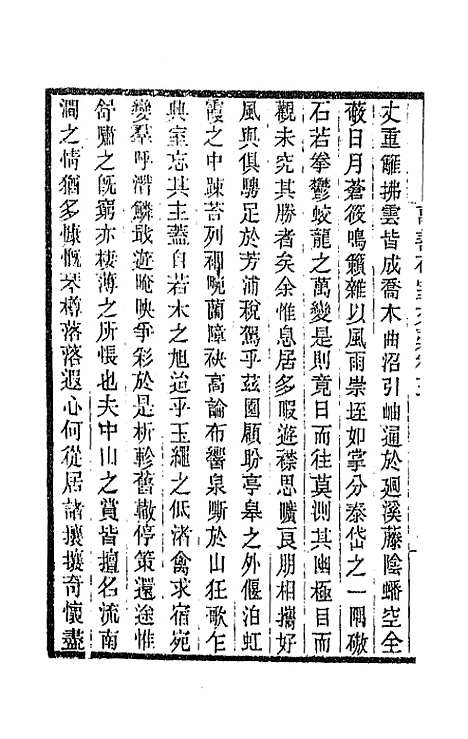 丈重離拂雲皆成喬木曲沼引岫逼於迴溪藤陰蟠空全
蔽日月蒼筱鳴籟雜以風雨崇垤如掌分泰岱之一隅磝
石若拳鬱蛟龍之萬變是則竟日而往莫測其幽極目而
觀未究其勝者矣余惟息居多暇遊襟思曠良朋相攜好
風與俱騁足於芳浦稅駕乎茲園顧盼亭皋之外偃泊虹
霞之中疎苔列裀晼蘭障袂高論布響泉嘶於山狂歌乍
興室忘其主蓋自若木之旭迨乎玉繩之低渚禽求宿宛
變羣呼潛鱗戢遊晻映爭彩於是析軫舊轍停策還途惟
舒嘯之旣窮亦棲薄之所悵也夫中山之賞皆擅名流南
澗之情猶多慷慨琴樽落落遐心何從居諸攘攘奇懷盡